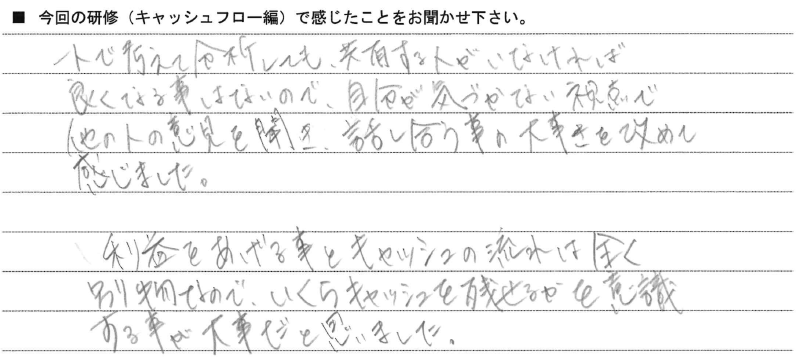 ■ 今回の研修（キャッシュフロー編）で感じたことをお聞かせ下さい。
一人で考えて分析しても、共有する人がいなければ
良くなる事はないので、自分が気づかない視点で
他の人の意見を聞き、話し合う事の大事さを改めて
感じました。
利益をあげる事とキャッシュの流れは全く
別物なので、いくらキャッシュを残せるかを意識
する事が大事だと思いました。